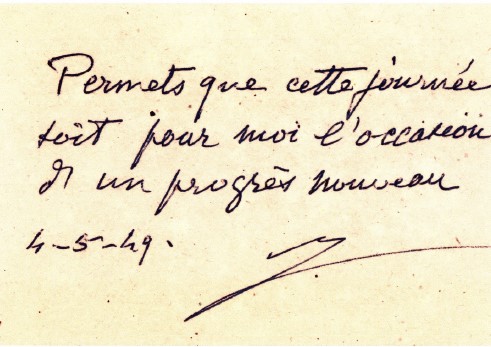 Permets que cette journée
soit pour moi l'occasion
d'un progrès nouveau
4-5-49.